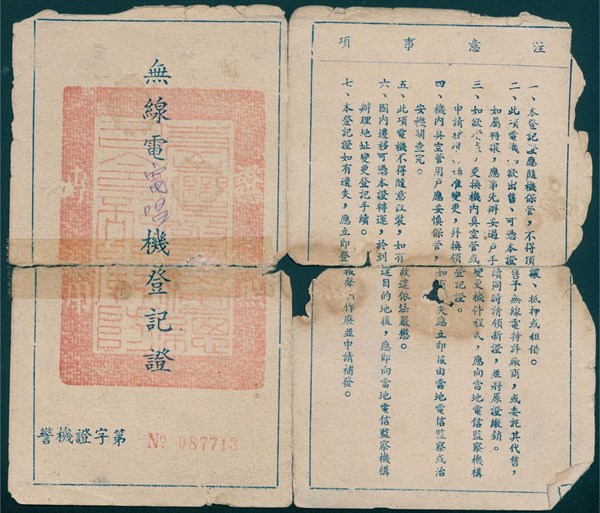 注意事項
一、本登記證應隨機保管，不得頂讓、抵押或租借。
二、此項電機如欲出售、可憑本證售予無線電特許廠商，或委託其代售，
如屬轉讓，應事先辦妥過戶手續同時請領新證，並將原證繳銷。
三、如欲，更換機內真空管或變更機件程式，應向當地電信監察機構
申請准變更，并換領登記證。
四、機內真空管用戶應妥慎保管，如失應立即報由當地電信監察或治
安機關查究。
五、此項電機不得隨意改裝，如有故違依法嚴懲。
六、國內遷移可憑本證轉運，於到達目的地後，應即向當地電信監察機構
辦理地址變更登記手續。
七、本登記證如有遺失，應立即登報聲作廢並申請補發。
無線電電唱機登記證
警機證字第 No 087713